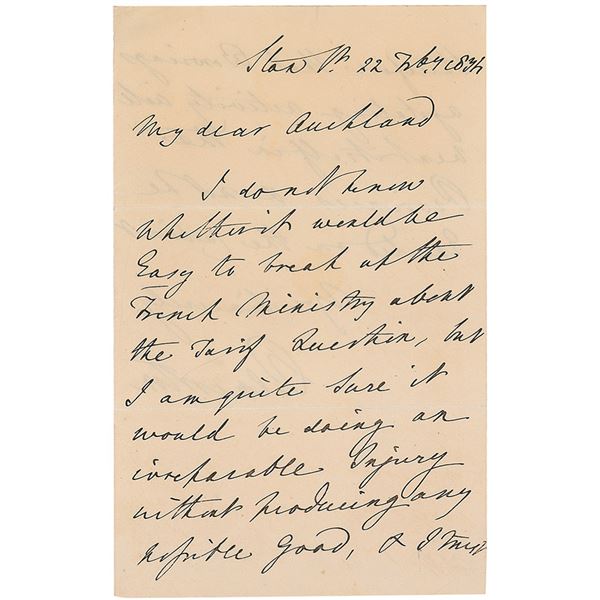 Stan St. 22 Feby 1834
My dear Auckland
I do not know
Whether it would be
Easy to break up the
French Ministry about
the Tarif Question, but
I am quite sure it
would be doing an
irreparable Injury
without producing any
possible Good, & I trust